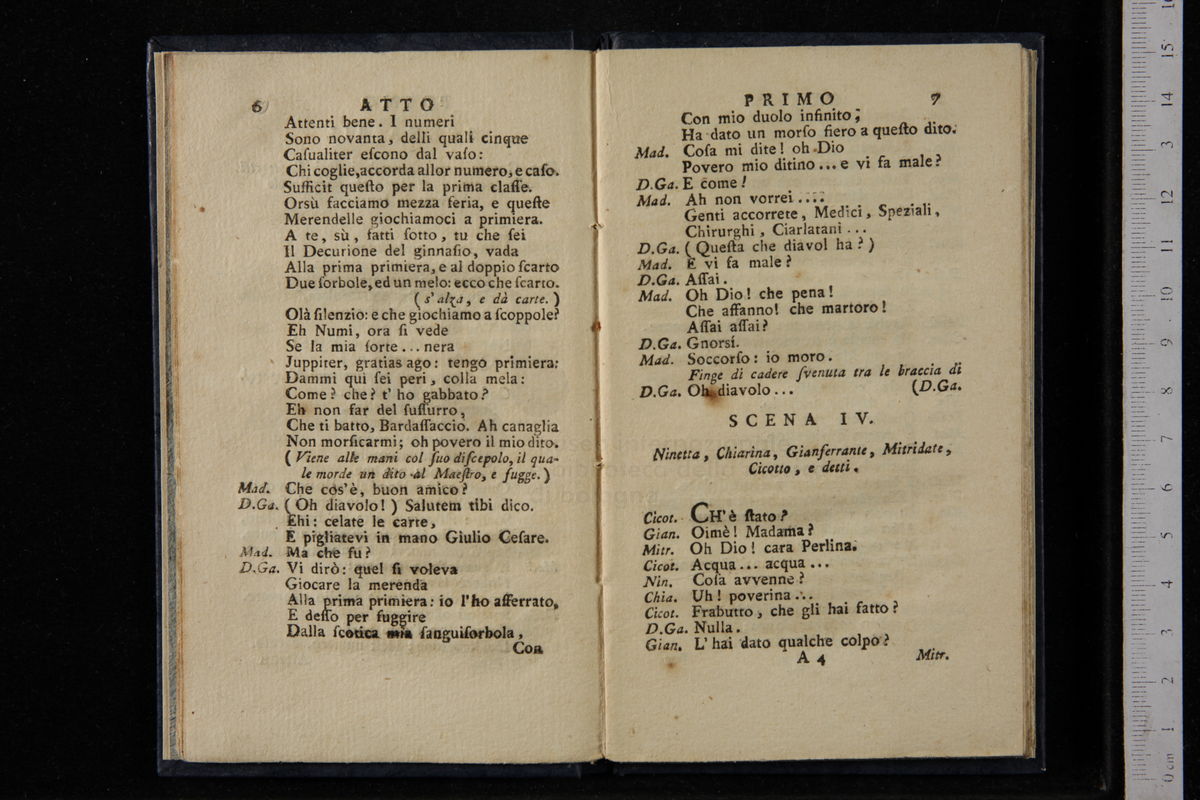 6) ATTO
Attenti bene. I numeri
Sono novanta, delli quali cinque
Caſualiter eſcono dal vaſo:
Chi coglie, accorda allor numero, e caſo.
Sufficit queſto per la prima claſſe.
Orsù facciamo mezza feria, e queſte
Merendelle giochiamoci a primiera.
A te, sù, fatti ſotto, tu che ſei
Il Decurione del ginnaſio, vada
Alla prima primiera, e al doppio ſcarto
Due ſorbole, ed un melo: ecco che ſcarto.
( s'alza, e dà carte. )
Olà ſilenzio: e che giochiamo a ſcoppole?
Eh Numi, ora ſi vede
Se la mia ſorte... nera
Juppiter, gratias ago: tengo primiera:
Dammi qui ſei peri, colla mela:
Come? che? t' ho gabbato?
Eh non far del fuſſurro,
Che ti batto, Bardaſſaccio. Ah canaglia
Non morſicarmi; oh povero il mio dito.
( Viene alle mani col ſuo diſcepolo, il qua-
le morde un dito al Maeſtro, e fugge. )
Mad. Che cos'è, buon amico?
D.Ga. ( Oh diavolo! ) Salutem tibi dico.
Ehi: celate le carte,
E pigliatevi in mano Giulio Ceſare.
Mad. Ma che fu?
D.Ga. Vi dirò: quel ſi voleva
Giocare la merenda
Alla prima primiera: io l'ho afferrato,
E deſſo per fuggire
Dalla ſcotica mia ſanguiſorbola,
Con
PRIMO 7
Con mio duolo infinito;
Ha dato un morſo fiero a queſto dito.
Mad. Coſa mi dite! oh Dio
Povero mio ditino... e vi fa male?
D.Ga. E come!
Mad. Ah non vorrei....
Genti accorrete, Medici, Speziali,
Chirurghi, Ciarlatani...
D.Ga. ( Queſta che diavol ha? )
Mad. E vi fa male?
D.Ga. Aſſai.
Mad. Oh Dio! che pena!
Che affanno! che martoro!
Aſſai aſſai?
D.Ga. Gnorsí.
Mad. Soccorſo: io moro.
Finge di cadere ſvenuta tra le braccia di
D.Ga. Oh diavolo... (D.Ga.
SCENA IV.
Ninetta, Chiarina, Gianferrante, Mitridate,
Cicotto, e detti.
Cicot. CH'è ſtato?
Gian. Oimè! Madama?
Mitr. Oh Dio! cara Perlina.
Cicot. Acqua... acqua...
Nin. Coſa avvenne?
Chia. Uh! poverina...
Cicot. Frabutto, che gli hai fatto?
D.Ga. Nulla.
Gian. L' hai dato qualche colpo?
A 4 Mitr.